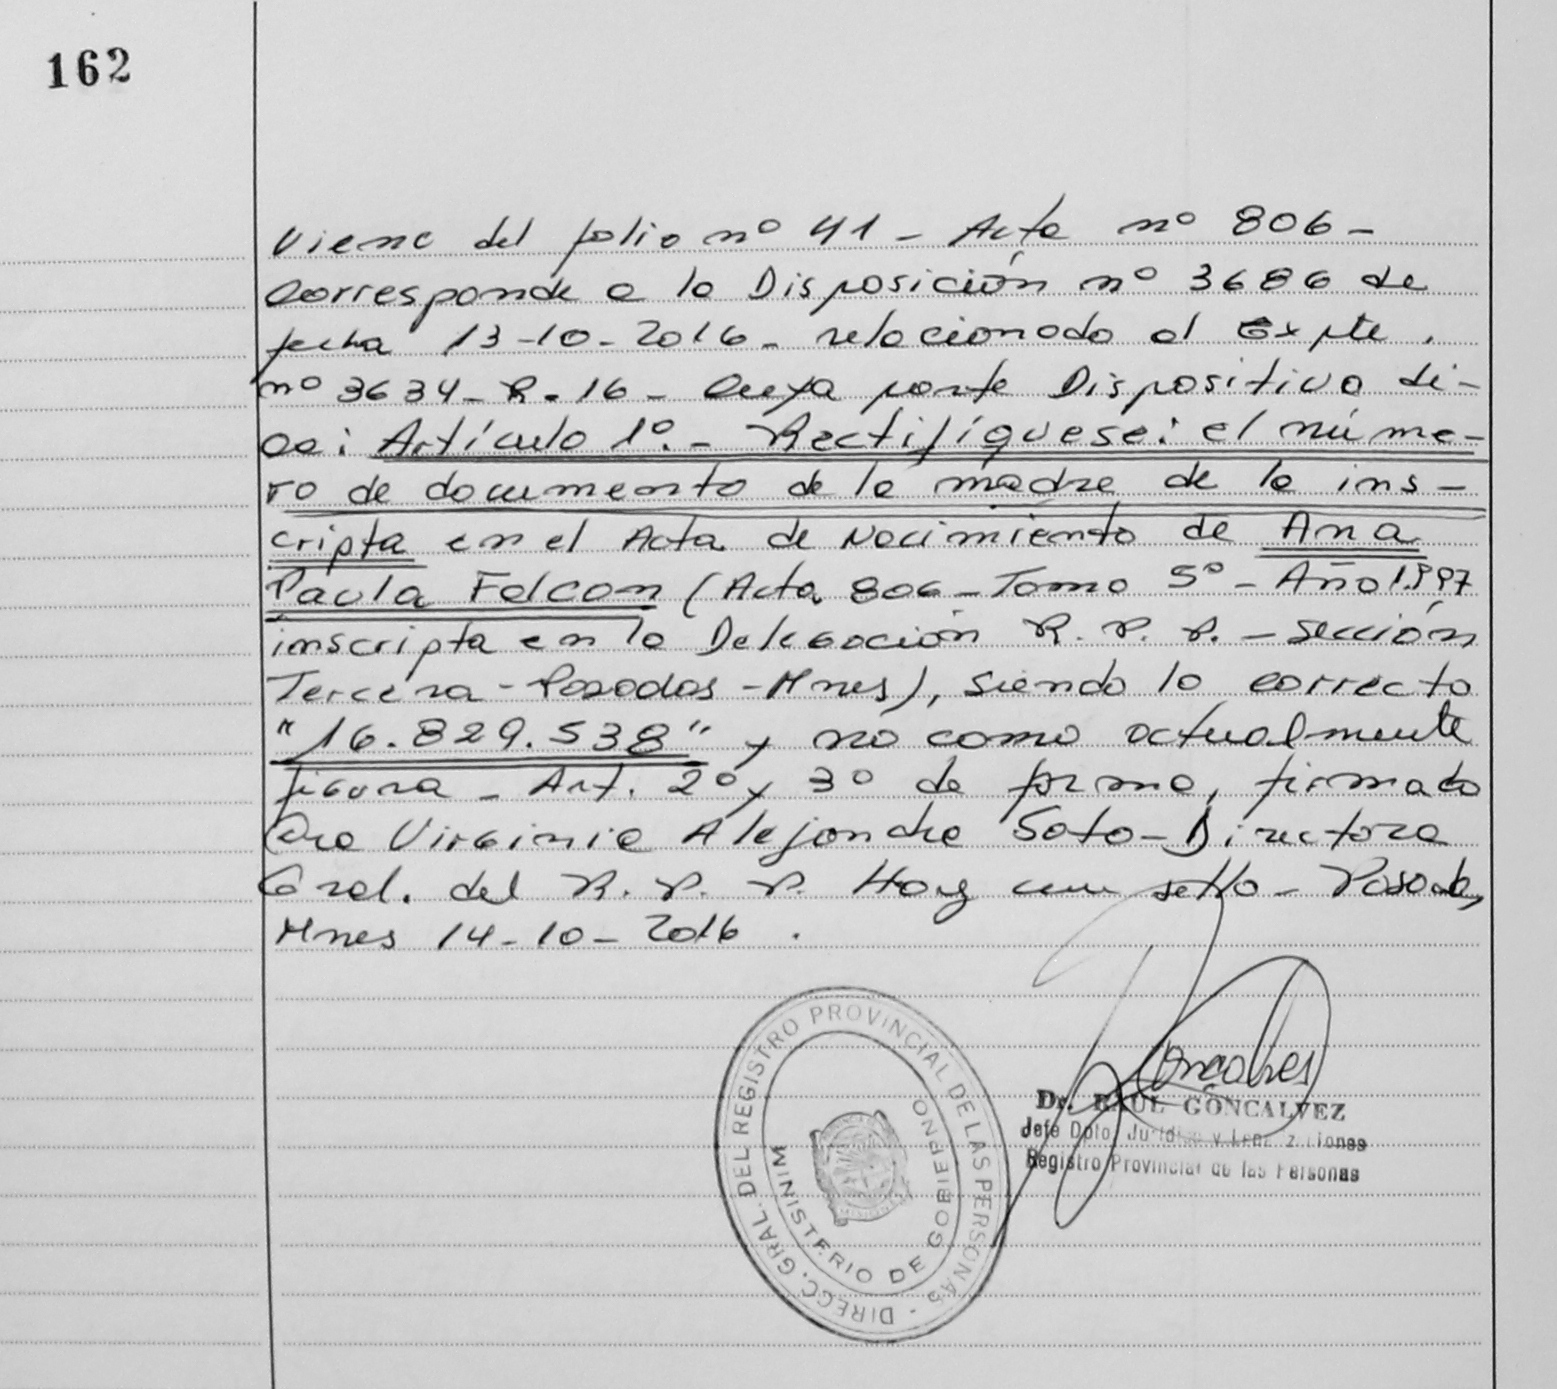 162
Viene del folio nº 41 - Acta nº 806 -
Corresponde a la Disposición nº 3686 de
fecha 13-10-2016 - relacionado al Expte.
nº 3634-R-16 - Cuya parte Dispositiva di-
ce: Artículo 1º.- Rectifíquese: el núme-
ro de documento de la madre de la ins-
cripta en el Acta de Nacimiento de Ana
Paula Falcon (Acta 806 - Tomo 5º - Año 1.997
inscripta en la Delegación R.P.P. - Sección
Tercera - Posadas - Mnes), siendo lo correcto
"16.829.538" y no como actualmente
figura - Art. 2º y 3º de forma, firmado
Dra Virginia Alejandra Soto - Directora
Gral. del R.P.P. Hay un sello - Posadas,
Mnes 14-10-2016.
DIRECC. GRAL. DEL REGISTRO PROVINCIAL DE LAS PERSONAS -
MINISTERIO DE GOBIERNO
Goncalves
Dr. RAUL GONCALVEZ
Jefe Dpto. Jurídico y
Registro Provincial de las Personas